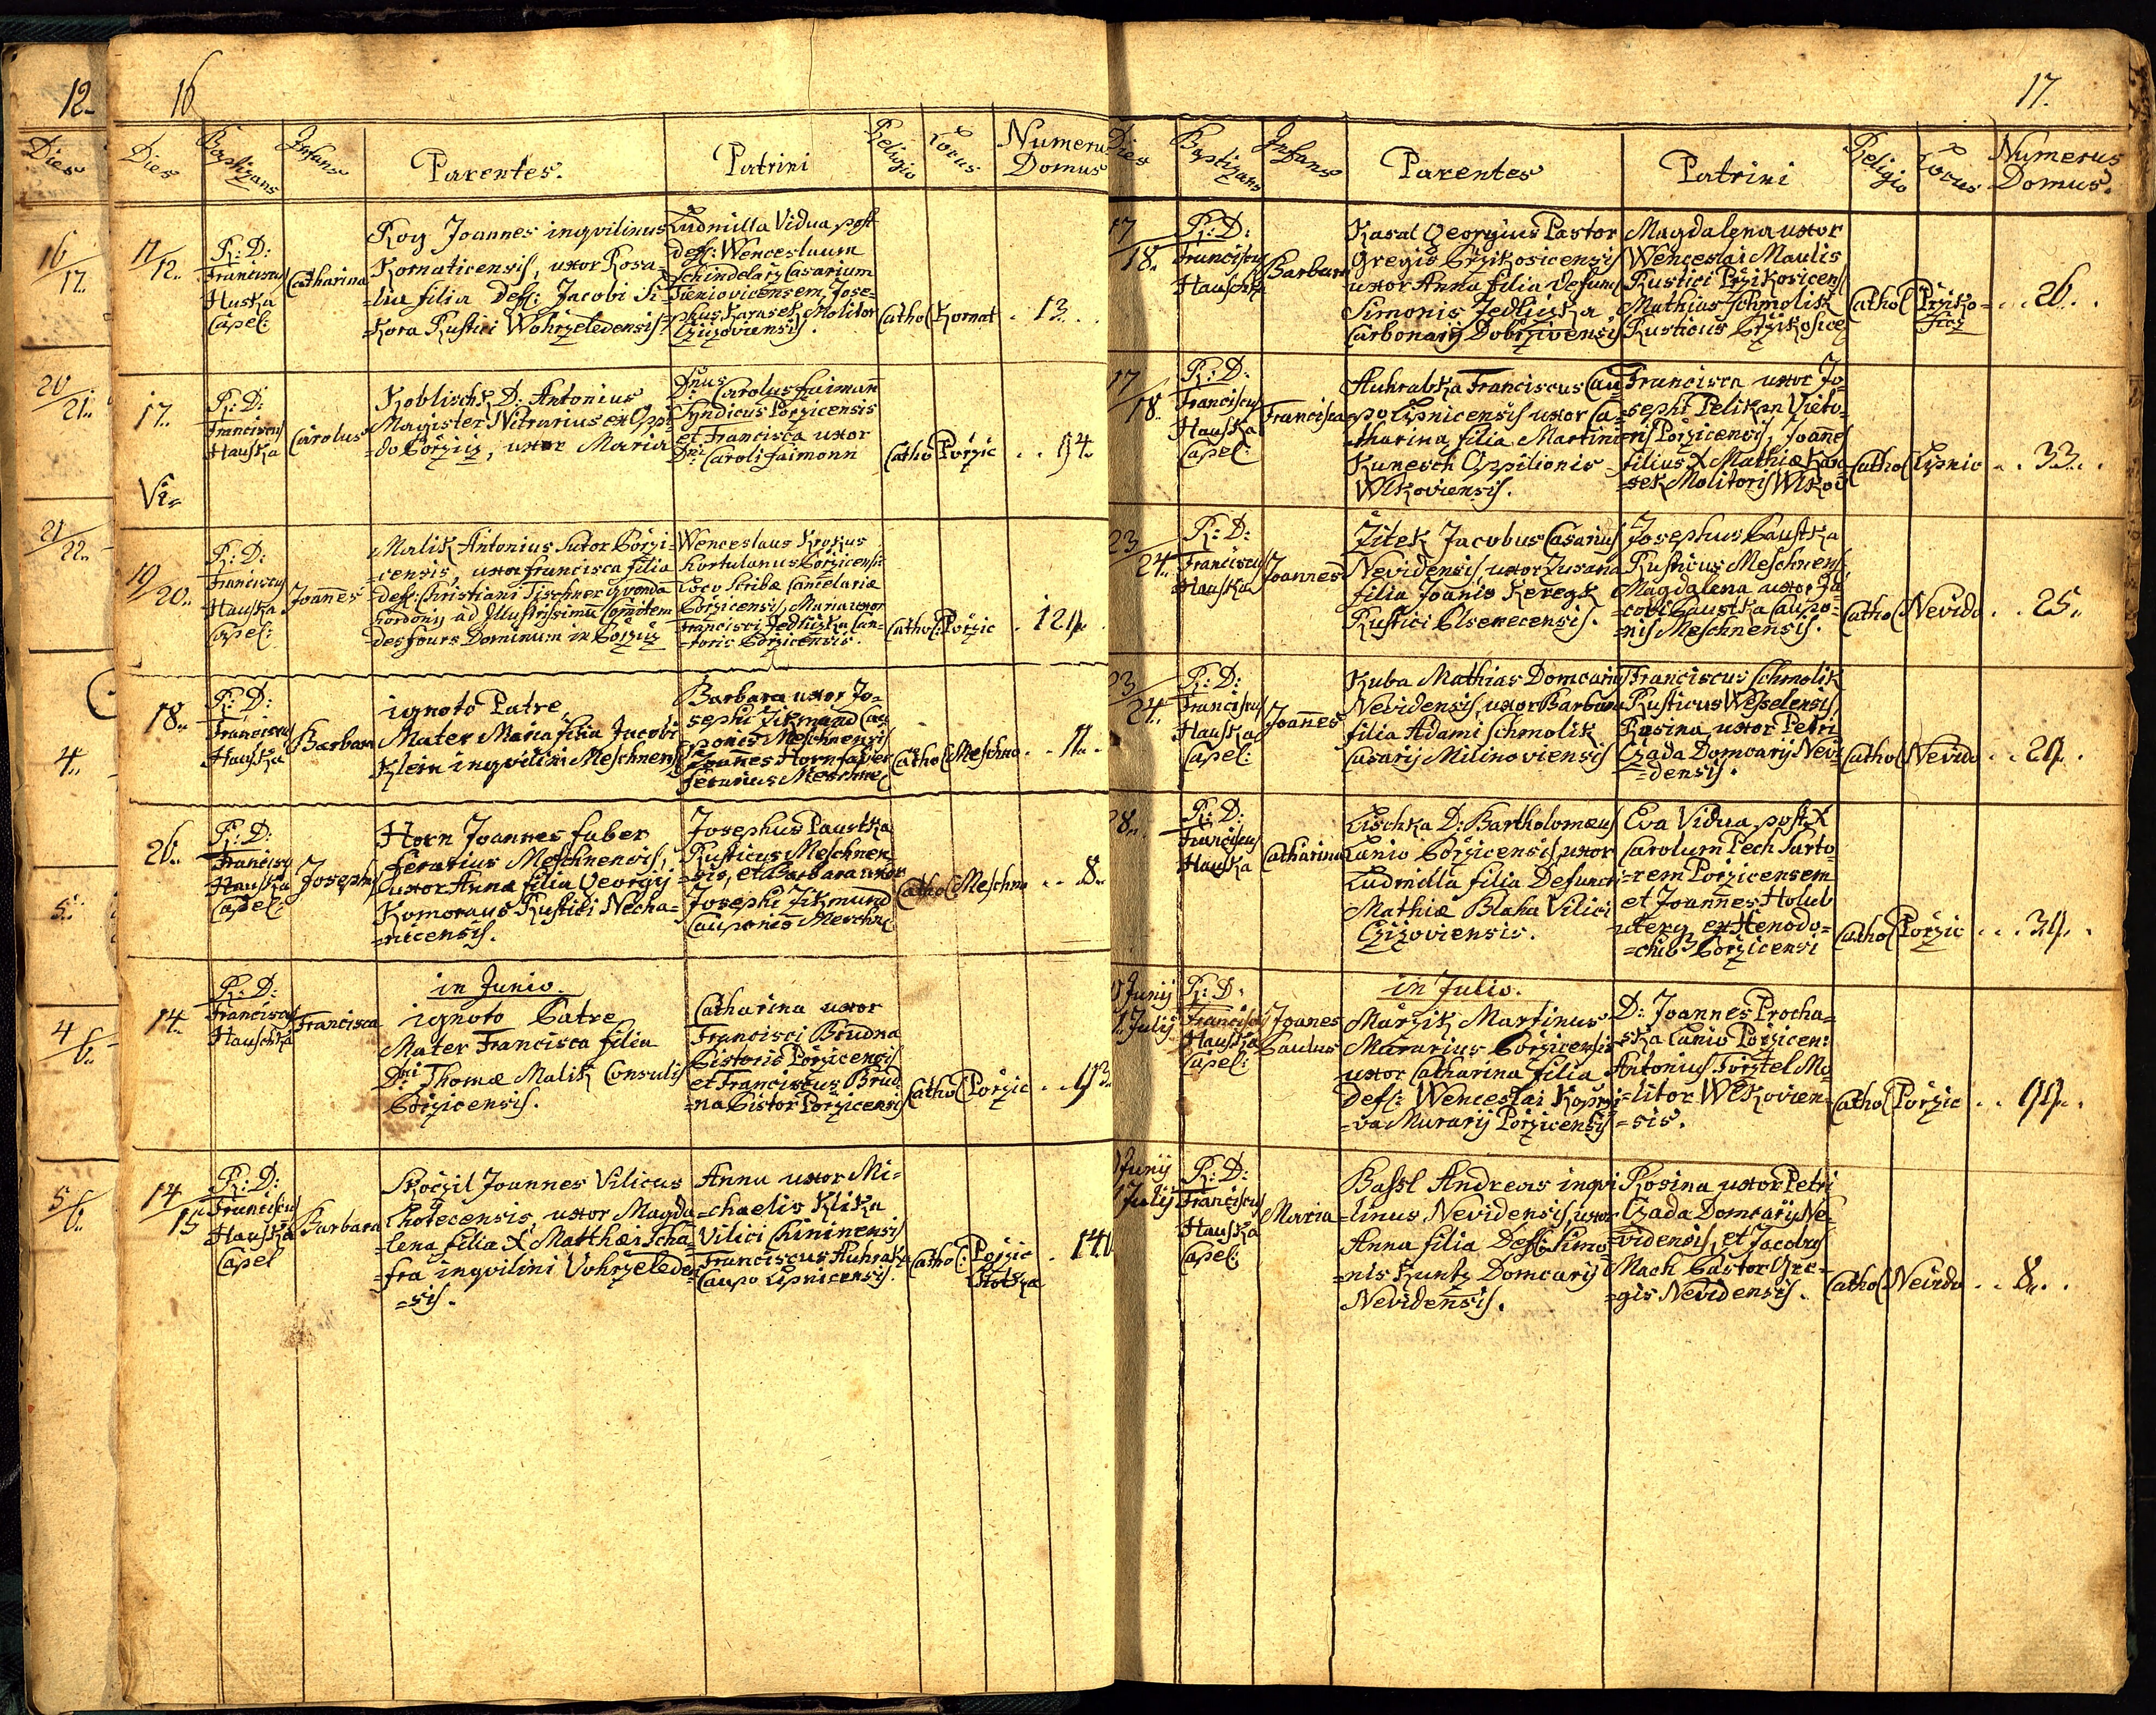 12.
Dies
16/17.
20/21.
21/22.
4.
5.
4/6.
5/6.
16
Dies
Baptizans
Infans
Parentes.
Patrini
Religio
Locus
Numeru
Domus
11/12.
R: D:
Franciscus
Huska
Capel:
Catharina
Roy Joannes inqvilinus
Kornaticensis, uxor Rosa-
=lia filia Deff: Jacobi Si-
=Kora Rustici Wohrzeledensis
Ludmilla Vidua post
Deff: Wenceslaum
Schindelarz Casarium
Jose=
phus Karasek Molitor
Czizoviensis.
Cathol
Kornat
. 13. .
17.
R: D:
Franciscus
Hauska
Carolus
Koblischk D: Antonius
Magister Nitrarius ex Oppi
=do Porzicz, uxor Maria
Dnus Carolus faimann
Syndicus Porzicensis
et Francisca uxor
Dni Caroli faimonn
Catho
Porzic
. . 94.
Vi=
19/20.
R: D:
Franciscus
Hauska
Capel:
Joannes
Malik Antonius Sutor Porzi=
=censis, uxor francisca filia
deff: Christiani Tischner qvondã
hordonij ad Illustrissimũ Comitem
desfours Dominum in Porzicz
Wenceslaus Krokus
hortulanus Porzicensis
Loco Scribæ Cancelariæ
Porzicensis, Maria uxor
Francisci Jedliczka Can=
=toris Porzicensis.
Cathol:
Porzic
18.
R: D:
Franciscus
Hauska
Barbara
ignoto Patre,
Mater Maria filia Jacobi
Klein inqvilini Meschnensis
Barbara uxor Jo=
sephi Zikmund Cau
ponis Meschnensis
Joannes Horn faber
ferarius Meschne
Catho
Meschno
. . 11. .
26.
R: D:
Franciscus
Hauska
Capel:
Josephus
Horn Joannes faber
ferarius Meschnensis,
uxor Anna filia Georgij
Komoraus Rustici Necha=
=nicensis.
Josephus Paustka
Rusticus Meschnen
sis, et Barbara uxor
Josephi Zikmund
Cauponis Meschne
Cathol
Meschno
. . 8.
14.
R: D:
Franciscus
Hauschka
Francisca
in Junio.
ignoto Patre
Mater Francisca filia
Dni Thomæ Malik Consulis
Porzicensis.
Catharina uxor
Francisci Brudna
Pistoris Porzicensis
et Franciscus Brud
=na Pistor Porzicensis
Cathol
Porzic
14/15
R: D:
Franciscus
Hauska
Capel
Barbara
Skoczil Joannes Vilicus
Chotecensis, uxor Magda
=lena filia X Matthæi Scha-
=fra inqvilini Vohrzeleden
=sis.
Anna uxor Mi=
=chaelis Klika
Vilici Chininensis
Franciscus Auhrabk
Caupo Lipnicensis.
Catho:
Porzic
17.
Dies
Baptizans
Infans
Parentes
Patrini
Religio
Locus
Numerus
Domus.
17/18.
R: D:
Franciscus
Hauschka
Barbara
Kasal Georgius Pastor
Gregis Przikosicensis
uxor Anna filia defunc
Simonis Jedliczka
Carbonarij Dobrzivensis
Magdalena uxor
Wenceslai Maulis
Rustici Przikosicens
Mathias Schmolik
Rusticus Przikosice
Cathol
Prziko=
. . . 26. .
17/18.
R: D:
Franciscus
Hauska
Capel:
Francisca
Auhrabka Franciscus Cau
=po Lipnicensis uxor Ca-
=tharina filia Martini
Kunesch Oppilionis
Wlkoviensis.
Francisca uxor Jo=
=sephi Pelikan Vieto-
=ris Porzicensis, Joannes
filius X Mathiæ Kara
=sek Molitoris Wlkov
Cathol
Lipnic
. . 33. .
23/24.
R: D:
Franciscus
Hauska
Joannes
Zitek Jacobus Casarius
Nevidensis uxor Zusana
filia Joanis Keregk
Rustici Elsenecensis.
Josephus Paustka
Rusticus Meschnens,
Magdalena uxor Ja
=cobi Paustka Caupo=
=nis Meschnensis.
Cathol
Nevido
. . 25.
23/24.
R: D:
Franciscus
Hauska
Capel:
Joannes
Kuba Mathias Domcarius
Nevidensis, uxor Barbara
filia Adami Schmolik
Casarij Milinoviensis
Franciscus Schmolik
Rusticus Wesselensis,
Rosina uxor Petri
Czada Domcarij Nevi
=densis.
Cathol
Nevido
28.
R: D:
Franciscus
Hauska
Catharina
Lischka D: Bartholomæus
Lanio Porzicensis, uxor
Ludmilla filia Defuncti
Mathiæ Blaha Vilici
Czizoviensis.
Eva Vidua post X
Carolum Pech Sarto-
=rem Porzicensem
et Joannes Holub
uterq ex Xenodo=
=chio Porzicensi
Cathol
Porzic
Junij
Julij
R: D:
Franciscus
Hauska
Capel:
Joanes
Paulus
in Julio.
Marzik Martinus
Murarius Porzicensis
uxor Catharina filia
Deff: Wenceslai Koprzi
=va Murarij Porzicensis
D: Joannes Procha=
=ska Lanio Porzicen:
Antonius Forstel Mo-
=litor Wlkovien-
=sis.
Cathol
Porzic
Junij
Julij
R: D:
Franciscus
Hauska
Capel:
Maria
Bassl Andreas inqvi
=linus Nevidensis, uxor
Anna filia Deff: Simo-
=nis Kuntz Domcarij
Nevidensis.
Rosina uxor Petri
Czada Domcarij Ne-
=vidensis, et Jacobus
Mach Pastor Gre-
=gis Nevidensis.
Cathol
Nevido
. . 8. .